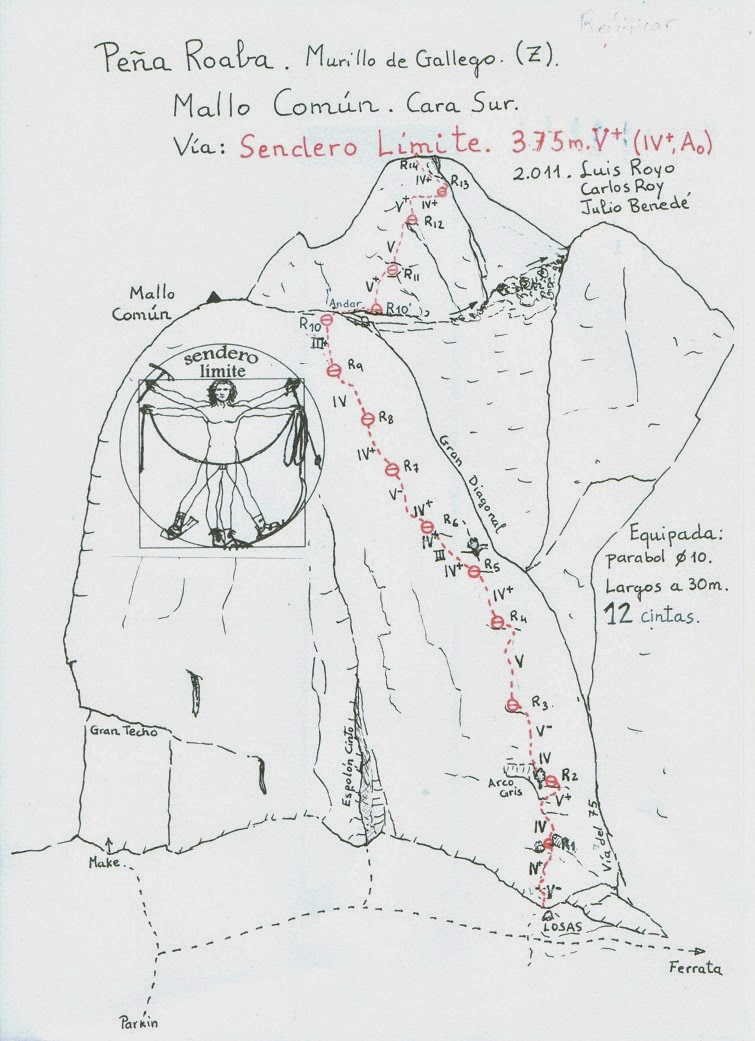 Peña Roaba. Murillo de Gallego. (Z).
Mallo Común. Cara Sur.
Vía: Sendero Límite. 375m. V+ (IV+, A₀)
2.011. Luis Royo
Carlos Roy
Julio Benedé
R14
IV+
R13
V+
IV+
R12
V
R11
V+
Mallo
Común
Andar
R10'
R10
III+
sendero
límite
R9
IV
R8
IV+
R7
V-
Gran Diagonal
IV+
R6
IV+
III
IV+
R5
IV+
R4
Equipada:
parabol ø10.
Largos a 30m.
12 cintas.
V
R3
V-
Gran Techo
Espolón Cinto
IV
R2
Arco
Gris
V+
Vía del 75
IV
R1
Make
IV+
V-
LOSAS
Ferrata
Parkin